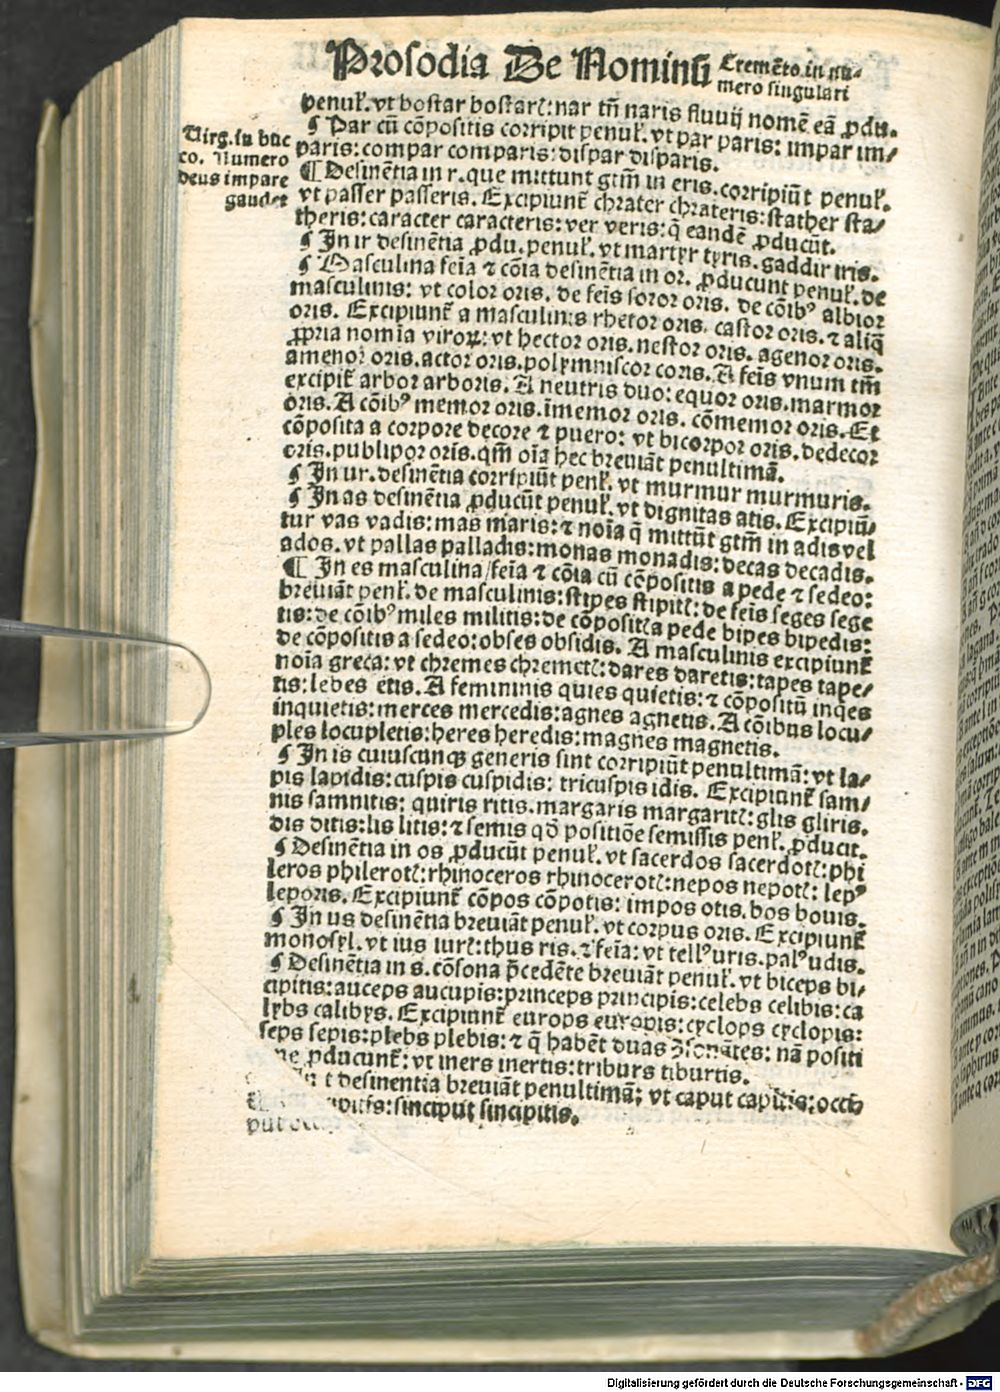 Prosodia De Nominũ Cremẽto in nu-
mero singulari
penuł. vt bostar bostarꝭ: nar tñ naris fluuij nomẽ eã ꝓdu.
¶ Par cũ cõpositis corripit penuł. vt par paris: impar im/
paris: compar comparis: dispar disparis.
Virg. in buc
co. Numero
deus impare
gaudet
¶ Desinẽtia in r. que mittunt gtm̃ in eris. corripiũt penuł.
vt passer passeris. Excipiunt̃ chrater chrateris: stather sta/
theris: caracter caracteris: ver veris: q̃ eandẽ ꝓducũt.
¶ In ir desinẽtia ꝓdu. penuł. vt martyr tyris. gaddir iris.
¶ Masculina feĩa ⁊ cõia desinẽtia in or. ꝓducunt penuł. de
masculinis: vt color oris. de feĩs soror oris. de cõibꝰ albior
oris. Excipiunt̃ a masculinis rhetor oris. castor oris. ⁊ aliq̃
ꝓpria nomĩa viroꝝ: vt hector oris. nestor oris. agenor oris.
amenor oris. actor oris. polymniscor coris. A feĩs vnum tm̃
excipit̃ arbor arboris. A neutris duo: equor oris. marmor
oris. A cõibꝰ memor oris. ĩmemor oris. cõmemor oris. Et
cõposita a corpore decore ⁊ puero: vt bicorpor oris. dedecor
oris. publipor oris. qm̃ oĩa hec breuiãt penultimã.
¶ In ur. desinẽtia corripiũt penł. vt murmur murmuris.
¶ In as desinẽtia ꝓducũt penuł. vt dignitas atis. Excipiũ/
tur vas vadis: mas maris: ⁊ noĩa q̃ mittũt gtm̃ in adis vel
ados. vt pallas palladis: monas monadis: decas decadis.
¶ In es masculina/feĩa ⁊ cõia cũ cõpositis a pede ⁊ sedeo:
breuiãt penł. de masculinis: stipes stipitꝭ: de feĩs seges sege
tis: de cõibꝰ miles militis: de cõpositꝭ a pede bipes bipedis:
de cõpositis a sedeo: obses obsidis. A masculinis excipiunt̃
noĩa greca: vt chremes chremetꝭ: dares daretis: tapes tape/
tis: lebes etis. A femininis quies quietis: ⁊ cõpositũ inq̃es
inquietis: merces mercedis: agnes agnetis. A cõibus locu/
ples locupletis: heres heredis: magnes magnetis.
¶ In is cuiuscunqꝫ generis sint corripiũt penultimã: vt la/
pis lapidis: cuspis cuspidis: tricuspis idis. Excipiunt̃ sam/
nis samnitis: quiris ritis. margaris margaritꝭ: glis gliris.
dis ditis: lis litis: ⁊ semis qđ positiõe semissis penł. ꝓducit.
¶ Desinẽtia in os ꝓducũt penuł. vt sacerdos sacerdotꝭ: phi
leros philerotꝭ: rhinoceros rhinocerotꝭ: nepos nepotꝭ: lepꝰ
leporis. Excipiunt̃ cõpos cõpotis: impos otis. bos bouis.
¶ In us desinẽtia breuiãt penuł. vt corpus oris. Excipiunt̃
monosyl. vt ius iurꝭ: thus ris. ⁊ feĩa: vt tellꝰ uris. palꝰ udis.
¶ Desinẽtia in s. cõsona p̃cedẽte breuiãt penuł. vt biceps bi/
cipitis: auceps aucupis: princeps principis: celebs celibis: ca
lybs calibys. Excipiunt̃ europs europis: cyclops cyclopis:
seps sepis: plebs plebis: ⁊ q̃ habẽt duas ꝯsonãtes: nã positi
ne ꝓducunt̃: vt iners inertis: tiburs tiburtis.
t desinentia breuiãt penultimã; vt caput capitis: occi
: sinciput sincipitis.
Digitalisierung gefördert durch die Deutsche Forschungsgemeinschaft - DFG